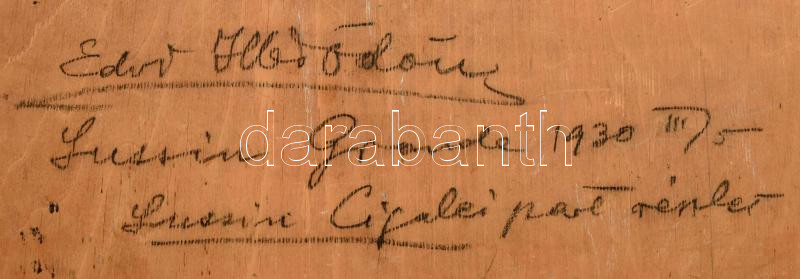 Edvi Illés Ödön
Lussin Grande 1930 III/5
" Lussin Cigalei part részlet
darabanth